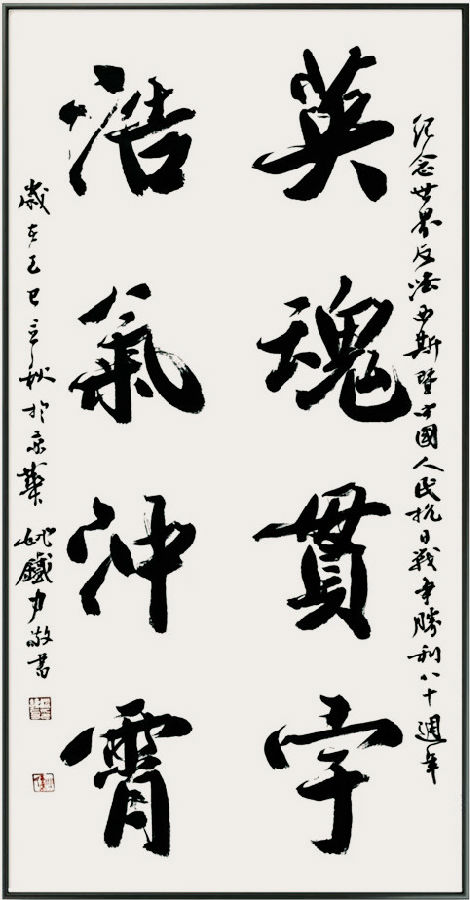 紀念世界反法西斯暨中國人民抗日戰争勝利八十週年
英魂貫宇
浩氣沖霄
歲在乙巳立秋於京華 姚鐵敬書